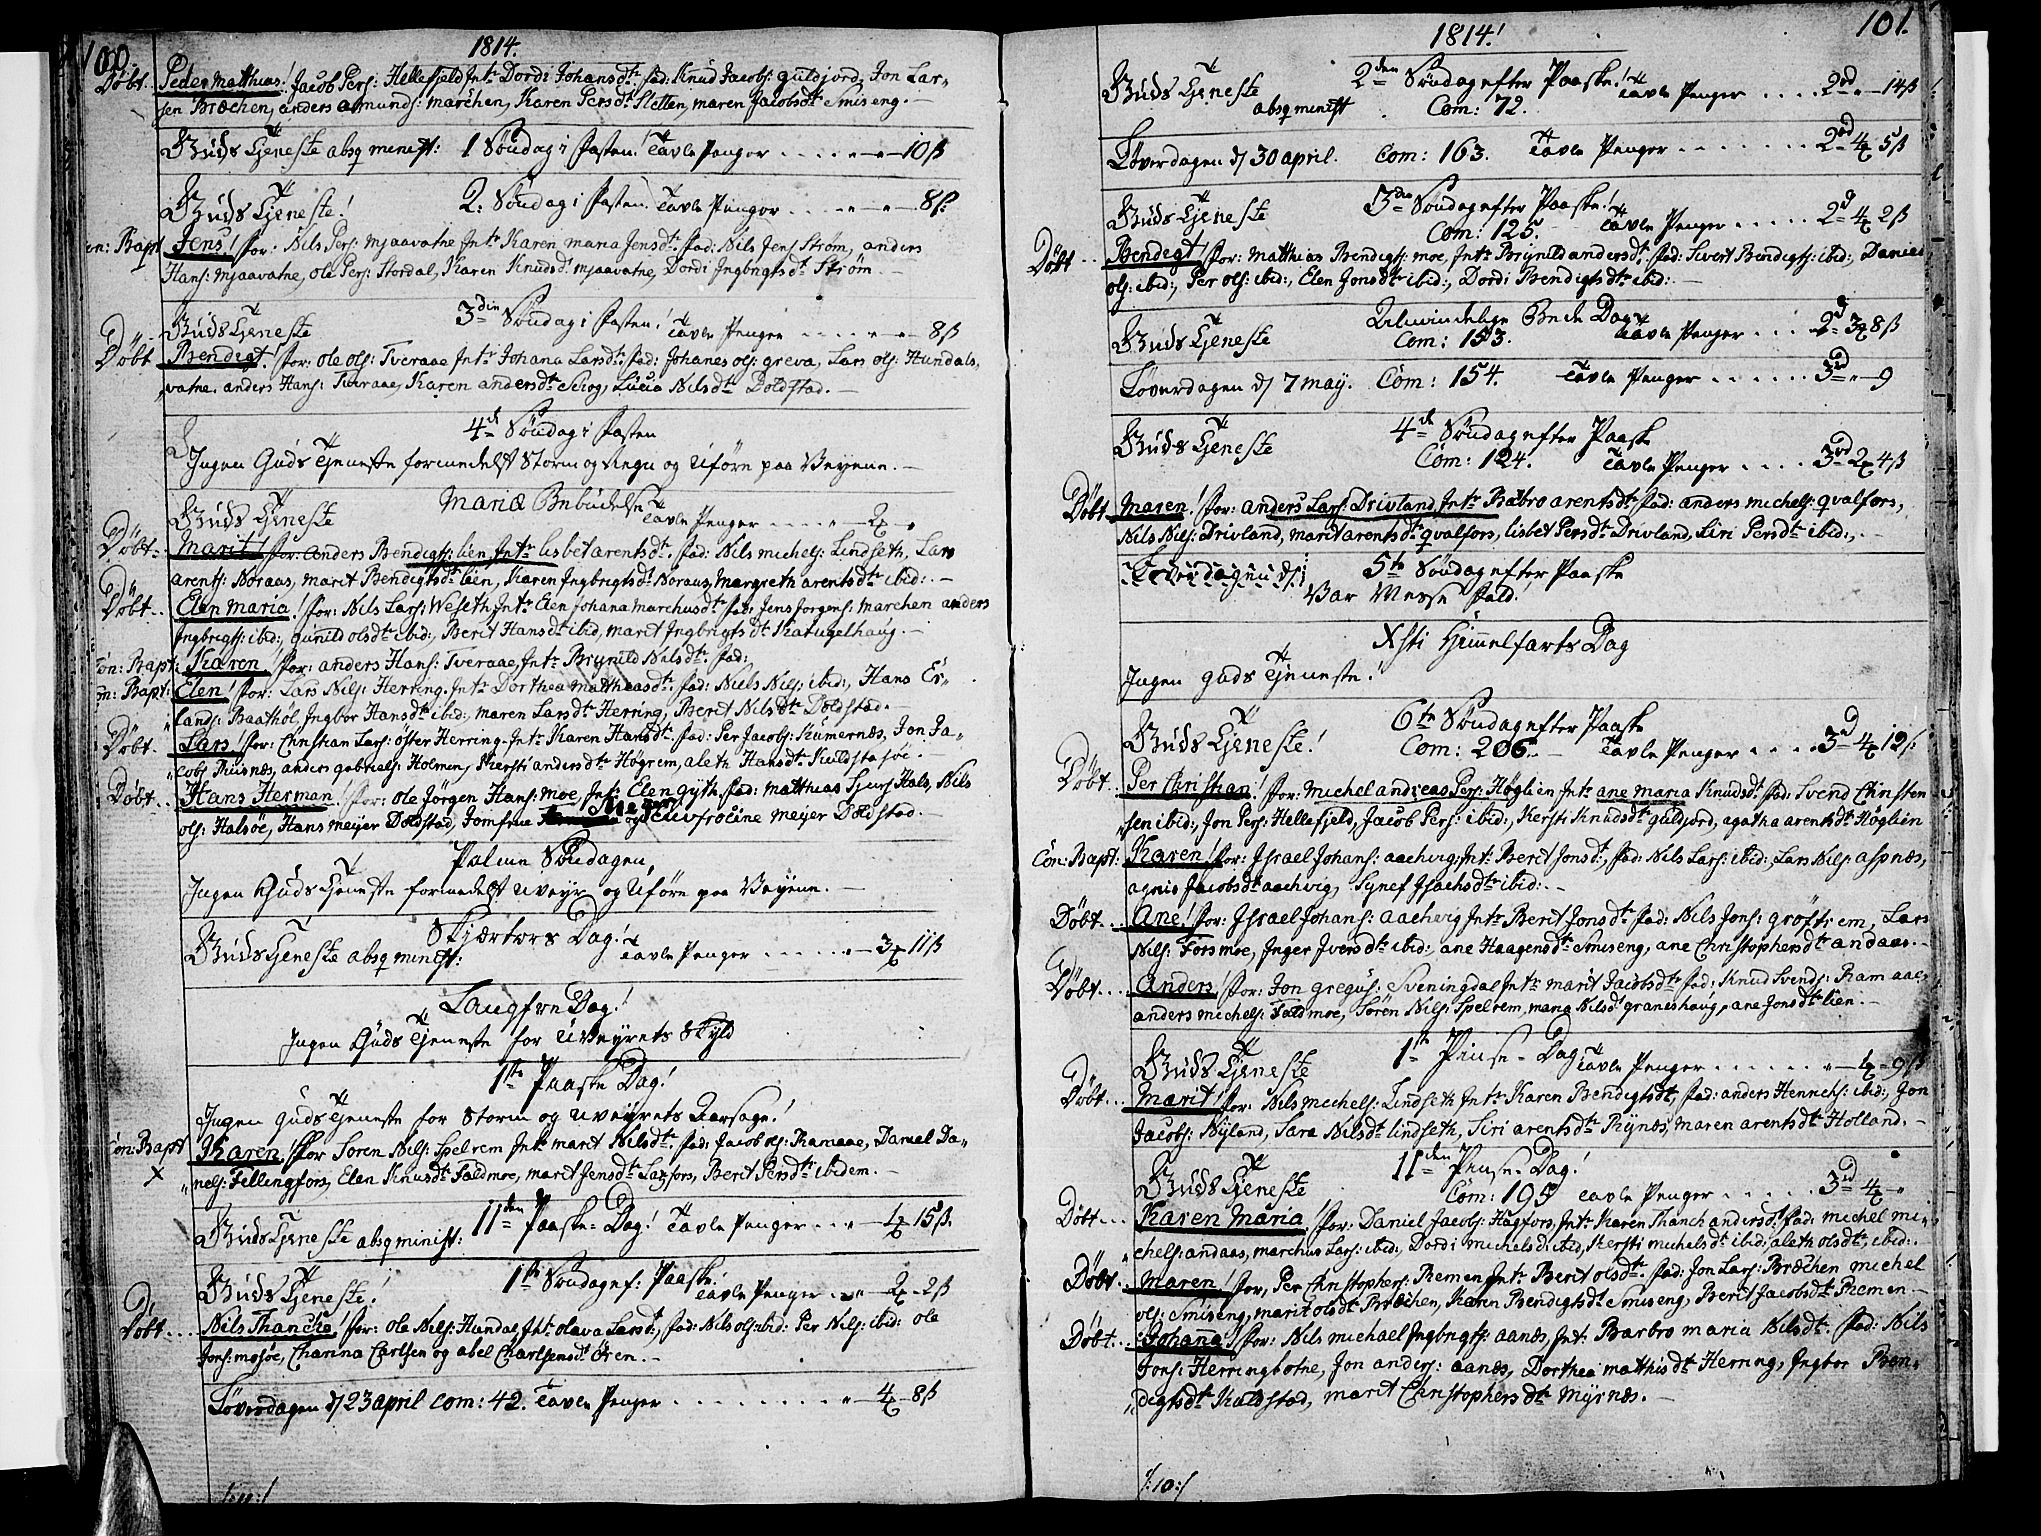 100.
1814.
Døbt. Peder Matthias! For: Jacob Pers: Hellefjeld Int: Dordi Johansdt: fad: Knud Jacobs: guldjord, Jon Lar-
sen Bræchen, anders amunds: marchen, Karen Persdt Sletten, maren Jacobsdt Smiseng.
Guds Tjeneste absq minist: 1 Søndag i Fasten! Tavle Penger . . . . 10 ß
Guds Tjeneste! 2. Søndag i Fasten! Tavle Penger . . . . 8 ß:
Con: Bapt Jens! For: Nils Pers: mjaavatne Int: Karen maria Jensdt. fad: Nils Jens Strøm, anders
Hans: mjaavatne, ole Pers: Stordal, Karen Knudsdt mjaavatne, Dordi Ingbrigtsdt Strøm.
Guds Tjeneste 3die Søndag i Fasten! Tavle Penger . . . . 8 ß
Døbt Bendigt! For: ole ols: Tveraae Int: Johana Larsdt. fad: Johanes ols: greva, Lars ols: Hundals,
vatne. anders Hans: Tveraae, Karen andersdt Skog, Lucia Nilsdt Dolstad.
4de Søndag i Fasten
Ingen Guds Tjeneste formedelst Storm og Regn og Uføre paa Veyene.
Guds Tjeneste Mariæ Bebudelse Tavle Penger . . . . 2
Døbt. Marit! For: anders Bendigts: lien, Int: lisbet arentsdt. fad: Nils michels: Lindseth, Lars
arents: Noraas, marit Bendigtsdt lien, Karen Ingbrigtsdt Noraas, Margreth arentsdt ibid:
Døbt. Elen Maria! For: Nils Lars: Weseth Int: Elen Johana marchusdt fad: Jens Jørgens: marchen anders
Ingbrigts: ibid:, gunild olsdt ibid:, Berit Hansdt ibid, marit Ingbrigtsdt Katugelhaug.
Con: Bapt: Karen For: anders Hans: Tveraae, Int: Brynild Nilsdt. fad:
Con: Bapt: Elen! For: Lars Nils: Herring. Int: Dorthea matthiasdt. fad: Niels Nils: ibid:, Hans Er-
lands: Baathøl, Ingbor Hansdt ibid:, maren Larsdt Herring, Berit Nilsdt Dolstad.
Døbt. Lars! For: Christian Lars: øster Herring. Int: Karen Hansdt. fad: Per Jacobs: Kumernæs, Jon Ja-
cobs Ruisnæs, anders gabriels: Holmen, Kersti andersdt Høgrem, aleth Hansdt
Døbt. Hans Herman! For: ole Jørgen Hans: moe Int: Elen gyth. fad: matthias Sjurs: Hals, Nils
ols: Halsøe, Hans meijer Dolstad, Jomfrue og meijer Dolstad.
Palme Søndagen,
Ingen Guds Tjeneste formedelst uveyr og Uføre paa Veyene.
Skjærtors Dag!
Guds Tjeneste absq minist: Tavle Penger . . . . 3 11 ß
Langfre Dag!
Ingen Guds Tjeneste for Uveyrets Skyld
1te Paaske Dag!
Ingen Guds Tjeneste for Storm og uveyrets Aarsage!
Con: Bapt Karen! For Søren Nils: Spelrem Int: marit Nilsdt. fad: Jacob ols: Ramaae, Daniel Da-
X nels: Fellingfors, Elen Knusdt Faldmoe, marit Jensdt Laxfors, Berit Persdt ibidem.
Guds Tjeneste absq minist: 11den Paaske-Dag! Tavle Penger . . . 4 15 ß.
Guds Tjeneste! 1te Søndag ef: Paaske! Tavle Penger . . 2 - 2 ß
Døbt. Nils Thanche! For: ole Nils: Hundal, Int: olava Larsdt:, fad: Nils ols: ibid: Per Nils: ibid: ole
Jons: mosøe, Charina Carlsen og abel Charlsensdt Øren.
Løverdagen d 23 april Com: 42. Tavle Penger . . . . . 4 - 8 ß
101.
1814!
Guds Tjeneste absq minist 2den Søndag efter Paaske! Tavle Penger . . . . 2rd - 14 ß
Com: 72.
Løverdagen d 30 april. Com: 163. Tavle Penger . . . . . 2rd 4 5 ß
Guds Tjeneste 3die Søndag efter Paaske!
Com: 125. Tavle Penger . . . . . 2d 4 2 ß
Døbt Bendegt! For: Matthias Bendigts: moe, Int: Brynild andersdt. fad: Sivert Bendigts: ibid:, Daniel
ols: ibid:, Per ols: ibid:, Elen Jonsdt ibid:, Dordi Bendigtsdt ibid:
Guds Tjeneste Almindelige Bede Dag
Com: 153. Tavle Penger . . . 2d 3 8 ß
Løverdagen d 7 may. Com: 154. Tavle Penger . . . . . . 3rd - 9
Guds Tjeneste 4de Søndag efter Paaske
Com: 124. Tavle Penger . . . . 3rd 2 4 ß
Døbt Maren! For: anders Lars: Drivland, Int: Babro arentsdt fad: anders michels: qvalfors,
Nils Nils: Drivland, marit arentsdt qvalfors, lisbet Persdt Drivland, Siri Persdt ibid:,
Løverdagen d 5te Søndag efter Paaske
Var Messe Fald!
Xsti Himmelfarts Dag
Ingen guds Tjeneste!
Guds Tjeneste! 6te Søndag efter Paaske
Com: 206. Tavle Penger . . . . 3d 4 12 ß:
Døbt. Per Christian! For: Michel andreas Pers: Høglien Int: ane maria Knudsdt fad: Svend Christen
sen ibid:, Jon Pers: Hellefjeld, Jacob Pers: ibid:, Kersti Knudsdt guldjord, agatha arentsdt Høglien
Con: Bapt: Karen! For: Israel Johans: aachvig, Int: Berit Jonsdt:, fad: Nils Lars: ibid:, Lars Nils: aspnæs,
agnis Jacobsdt aachvig, Synef Isachsdt ibid:.
Døbt. Ane! For: Israel Johans: aachvig Int: Berit Jonsdt fad: Nils Jons: grøftrem, Lars
Nils: Forsmoe, Inger Iversdt ibid:, ane Haagensdt Smiseng, ane Christophersdt andaas.
Døbt. Anders! For: Jon gregus: Sveningdal Int: marit Jacobsdt fad: Knud Svends: Ramaae,
anders michels: Faldmoe, Søren Nils: Spelrem, maria Nilsdt graneshaug, ane Jonsdt lien.
Guds Tjeneste 1te Pinse-Dag Tavle Penger . . . . . . 4 - 9 ß
Døbt. Marit! For: Nils michels: Lindseth Int: Karen Bendigtsdt, fad: anders Henrichs: ibid:, Jon
Jacobs: Nyland, Sara Nilsdt lindseth, Siri arentsdt Rynes, maren arentsdt Holland.
Guds Tjeneste 11den Pinse-Dag!
Com: 195 Tavle Penger . . . . . 3rd 4
Døbt. Karen Maria! For: Daniel Jacobs: Hagfors, Int: Karen Thanch andersdt fad: michel mi-
chels: andaas, marchus Lars: ibid:, Dordi michelsd: ibid, Kersti michelsdt ibid: aleth olsdt, ibid:.
Døbt. Maren! For, Per Christophers: Remen Int: Berit olsdt. fad: Jon Lars: Bræchen michel
ols: Smiseng, marit olsdt Bræchen, Karen Bendigtsdt Smiseng, Berit Jacobsdt Remen
Døbt. Johana! For: Nils michael Ingbrigts: aanæs, Int: Barbro maria Nilsdt. fad: Nils
Jons: Herringbotne, Jon anders: aanæs, Dorthea matthisdt Herring, Ingbor Ben-
digtsdt Kaldstad, marit Christophersdt Myrnæs.
/:10:/